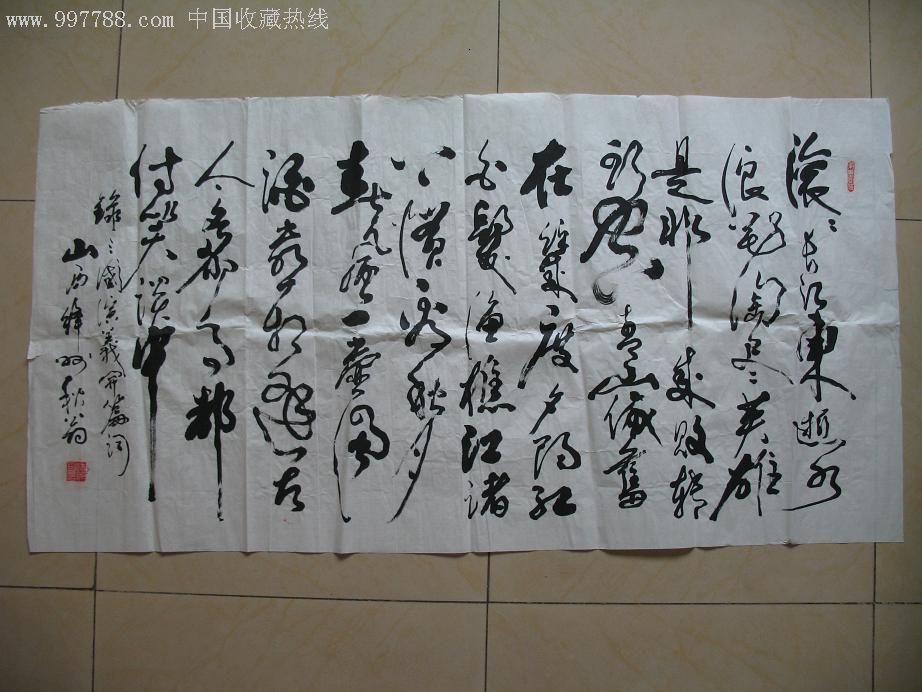 www.997788.com 中国收藏热线
滚滚长江東逝水
浪花淘尽英雄
是非成败转
头空青山依舊
在几度夕阳红
白髮渔樵江渚
上惯看秋月
春风一壶浊
酒喜相逢古
今多少事都
付笑谈中
錄三國演義開篇词
山西绛州秋翁